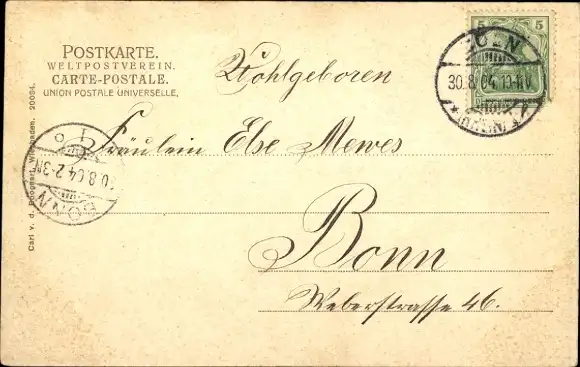 POSTKARTE.
WELTPOSTVEREIN.
CARTE-POSTALE.
UNION POSTALE UNIVERSELLE.
5 5
30.8.04.
Wohlgeboren
Fräulein Else Mewes
Bonn
Weberstrasse 46.
BONN
0.8.04.2-3N
Carl v. d. Wiesbaden. 20054.